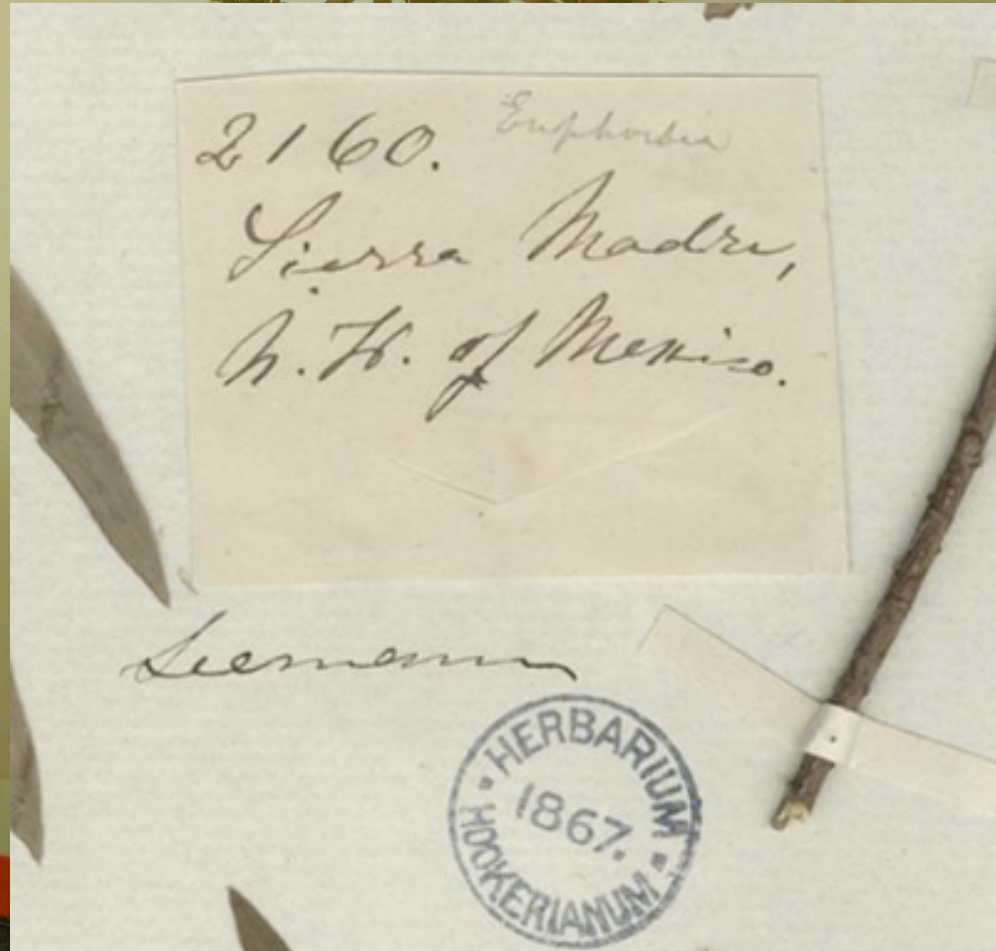 2160. Euphorbia
Sierra Madre,
N.W. of Mexico.
Seemann
HERBARIUM
1867.
HOOKERIANUM